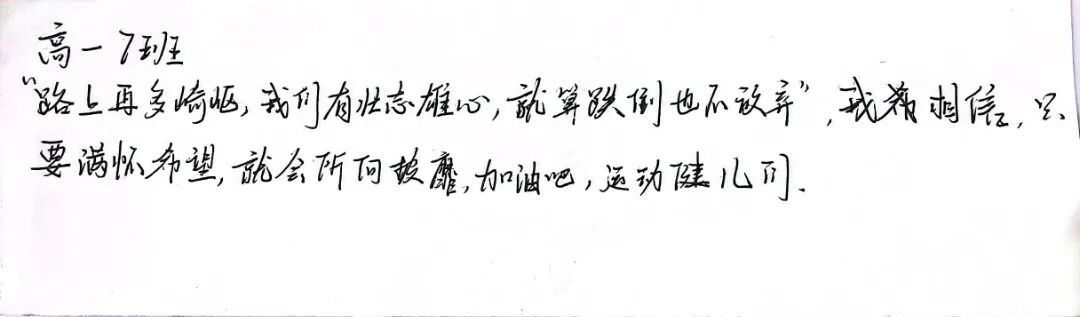 高一7班
“路上再多崎岖,我们有壮志雄心,就算跌倒也不放弃”,我相信,只
要满怀希望,就会所向披靡,加油吧,运动健儿们.